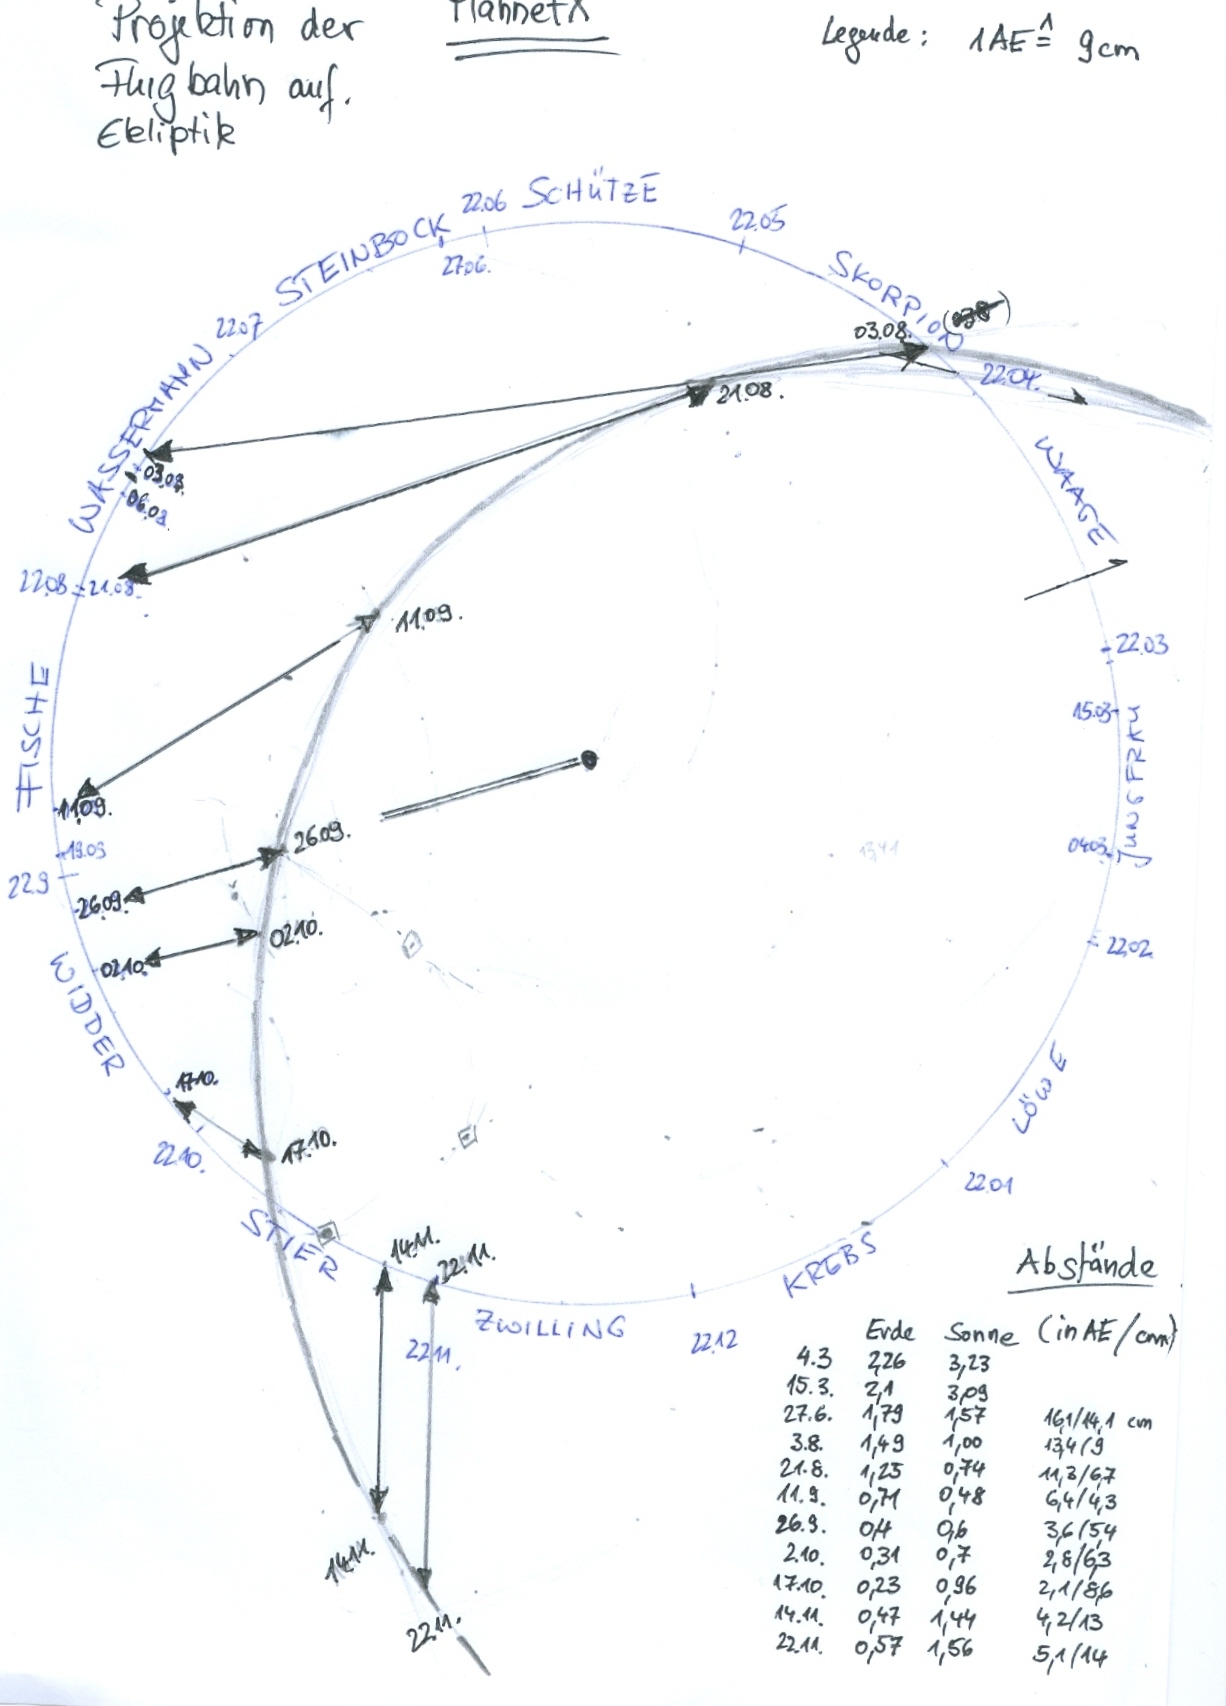 Projektion der
Flugbahn auf.
Ekliptik
PlannetX
Legende: 1AE ≙ 9cm
22.06 SCHÜTZE
22.05
STEINBOCK
27.06.
SKORPION
(03.8)
03.08.
22.07
22.04.
21.08.
WASSERMANN
03.08.
06.08.
WAAGE
22.08
21.08.
11.09.
22.03
FISCHE
15.03
JUNGFRAU
11.09.
26.09.
19.09
1341
04.03
22.9
26.09.
02.10.
22.02
02.10.
WIDDER
17.10.
LÖWE
17.10.
22.10.
22.01
STIER
14.11.
22.11.
KREBS
ZWILLING
22.11.
22.12
14.11.
22.11.
Abstände
Erde Sonne (in AE/cm)
4.3 2,26 3,23
15.3. 2,1 3,09
27.6. 1,79 1,57 16,1/14,1 cm
3.8. 1,49 1,00 13,4/9
21.8. 1,25 0,74 11,3/6,7
11.9. 0,71 0,48 6,4/4,3
26.9. 0,4 0,6 3,6/5,4
2.10. 0,31 0,7 2,8/6,3
17.10. 0,23 0,96 2,1/8,6
14.11. 0,47 1,44 4,2/13
22.11. 0,57 1,56 5,1/14